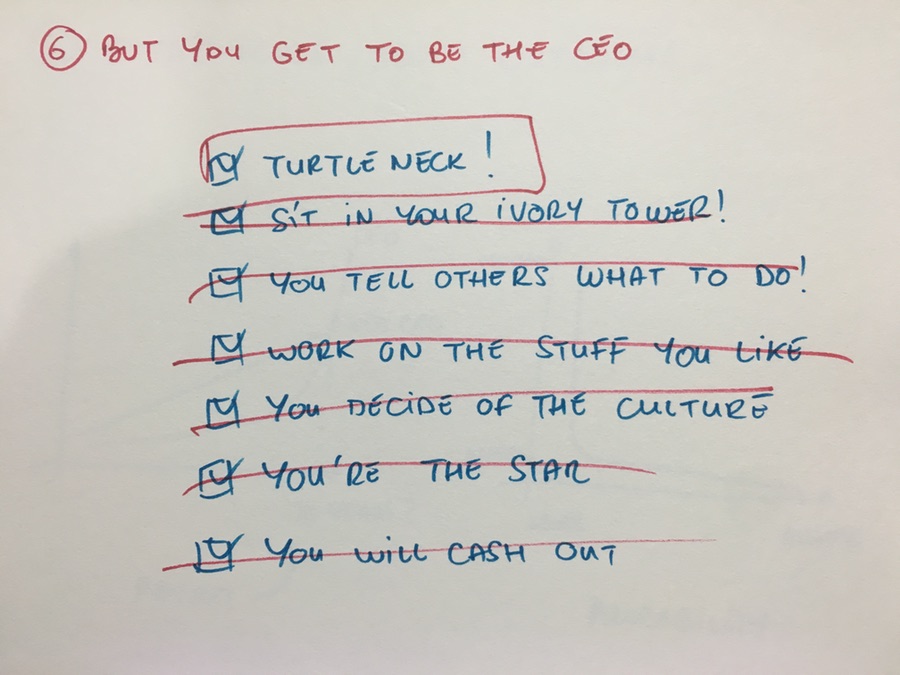 6 BUT YOU GET TO BE THE CEO
TURTLE NECK!
SIT IN YOUR IVORY TOWER!
YOU TELL OTHERS WHAT TO DO!
WORK ON THE STUFF YOU LIKE
YOU DECIDE OF THE CULTURE
YOU'RE THE STAR
YOU WILL CASH OUT